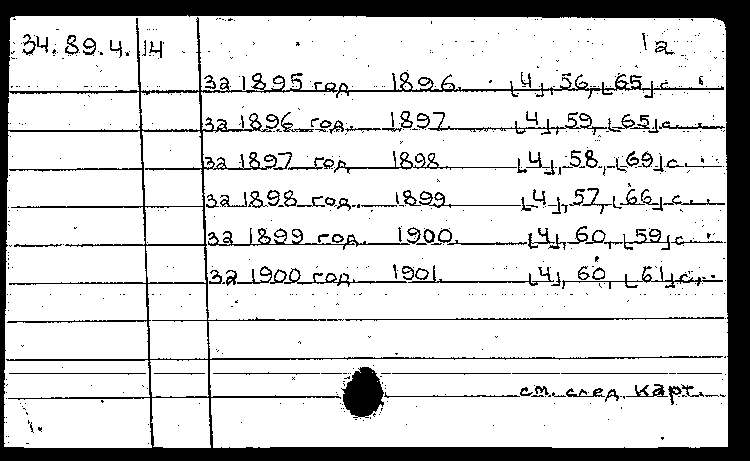 34.89.4.14 1а
за 1895 год 1896. ⌊4⌋, 56, ⌊65⌋с.
за 1896 год. 1897. ⌊4⌋, 59, ⌊65⌋с.
за 1897 год. 1898. ⌊4⌋, 58, ⌊69⌋с.
за 1898 год. 1899. ⌊4⌋, 57, ⌊66⌋с.
за 1899 год. 1900. ⌊4⌋, 60, ⌊59⌋с.
за 1900 год. 1901. ⌊4⌋, 60, ⌊61⌋с.
см. след. карт.